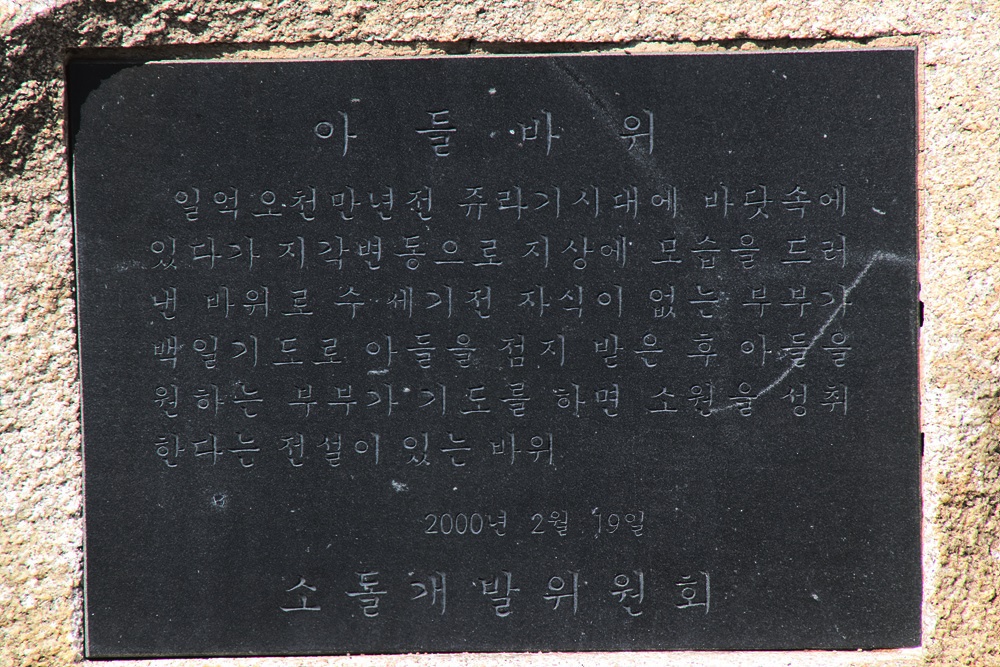 아들바위
일억오천만년전 쥬라기시대에 바닷속에
있다가 지각변동으로 지상에 모습을 드러
낸 바위로 수 세기전 자식이 없는 부부가
백일기도로 아들을 점지 받은 후 아들을
원하는 부부가 기도를 하면 소원을 성취
한다는 전설이 있는 바위
2000년 2월 19일
소돌개발위원회